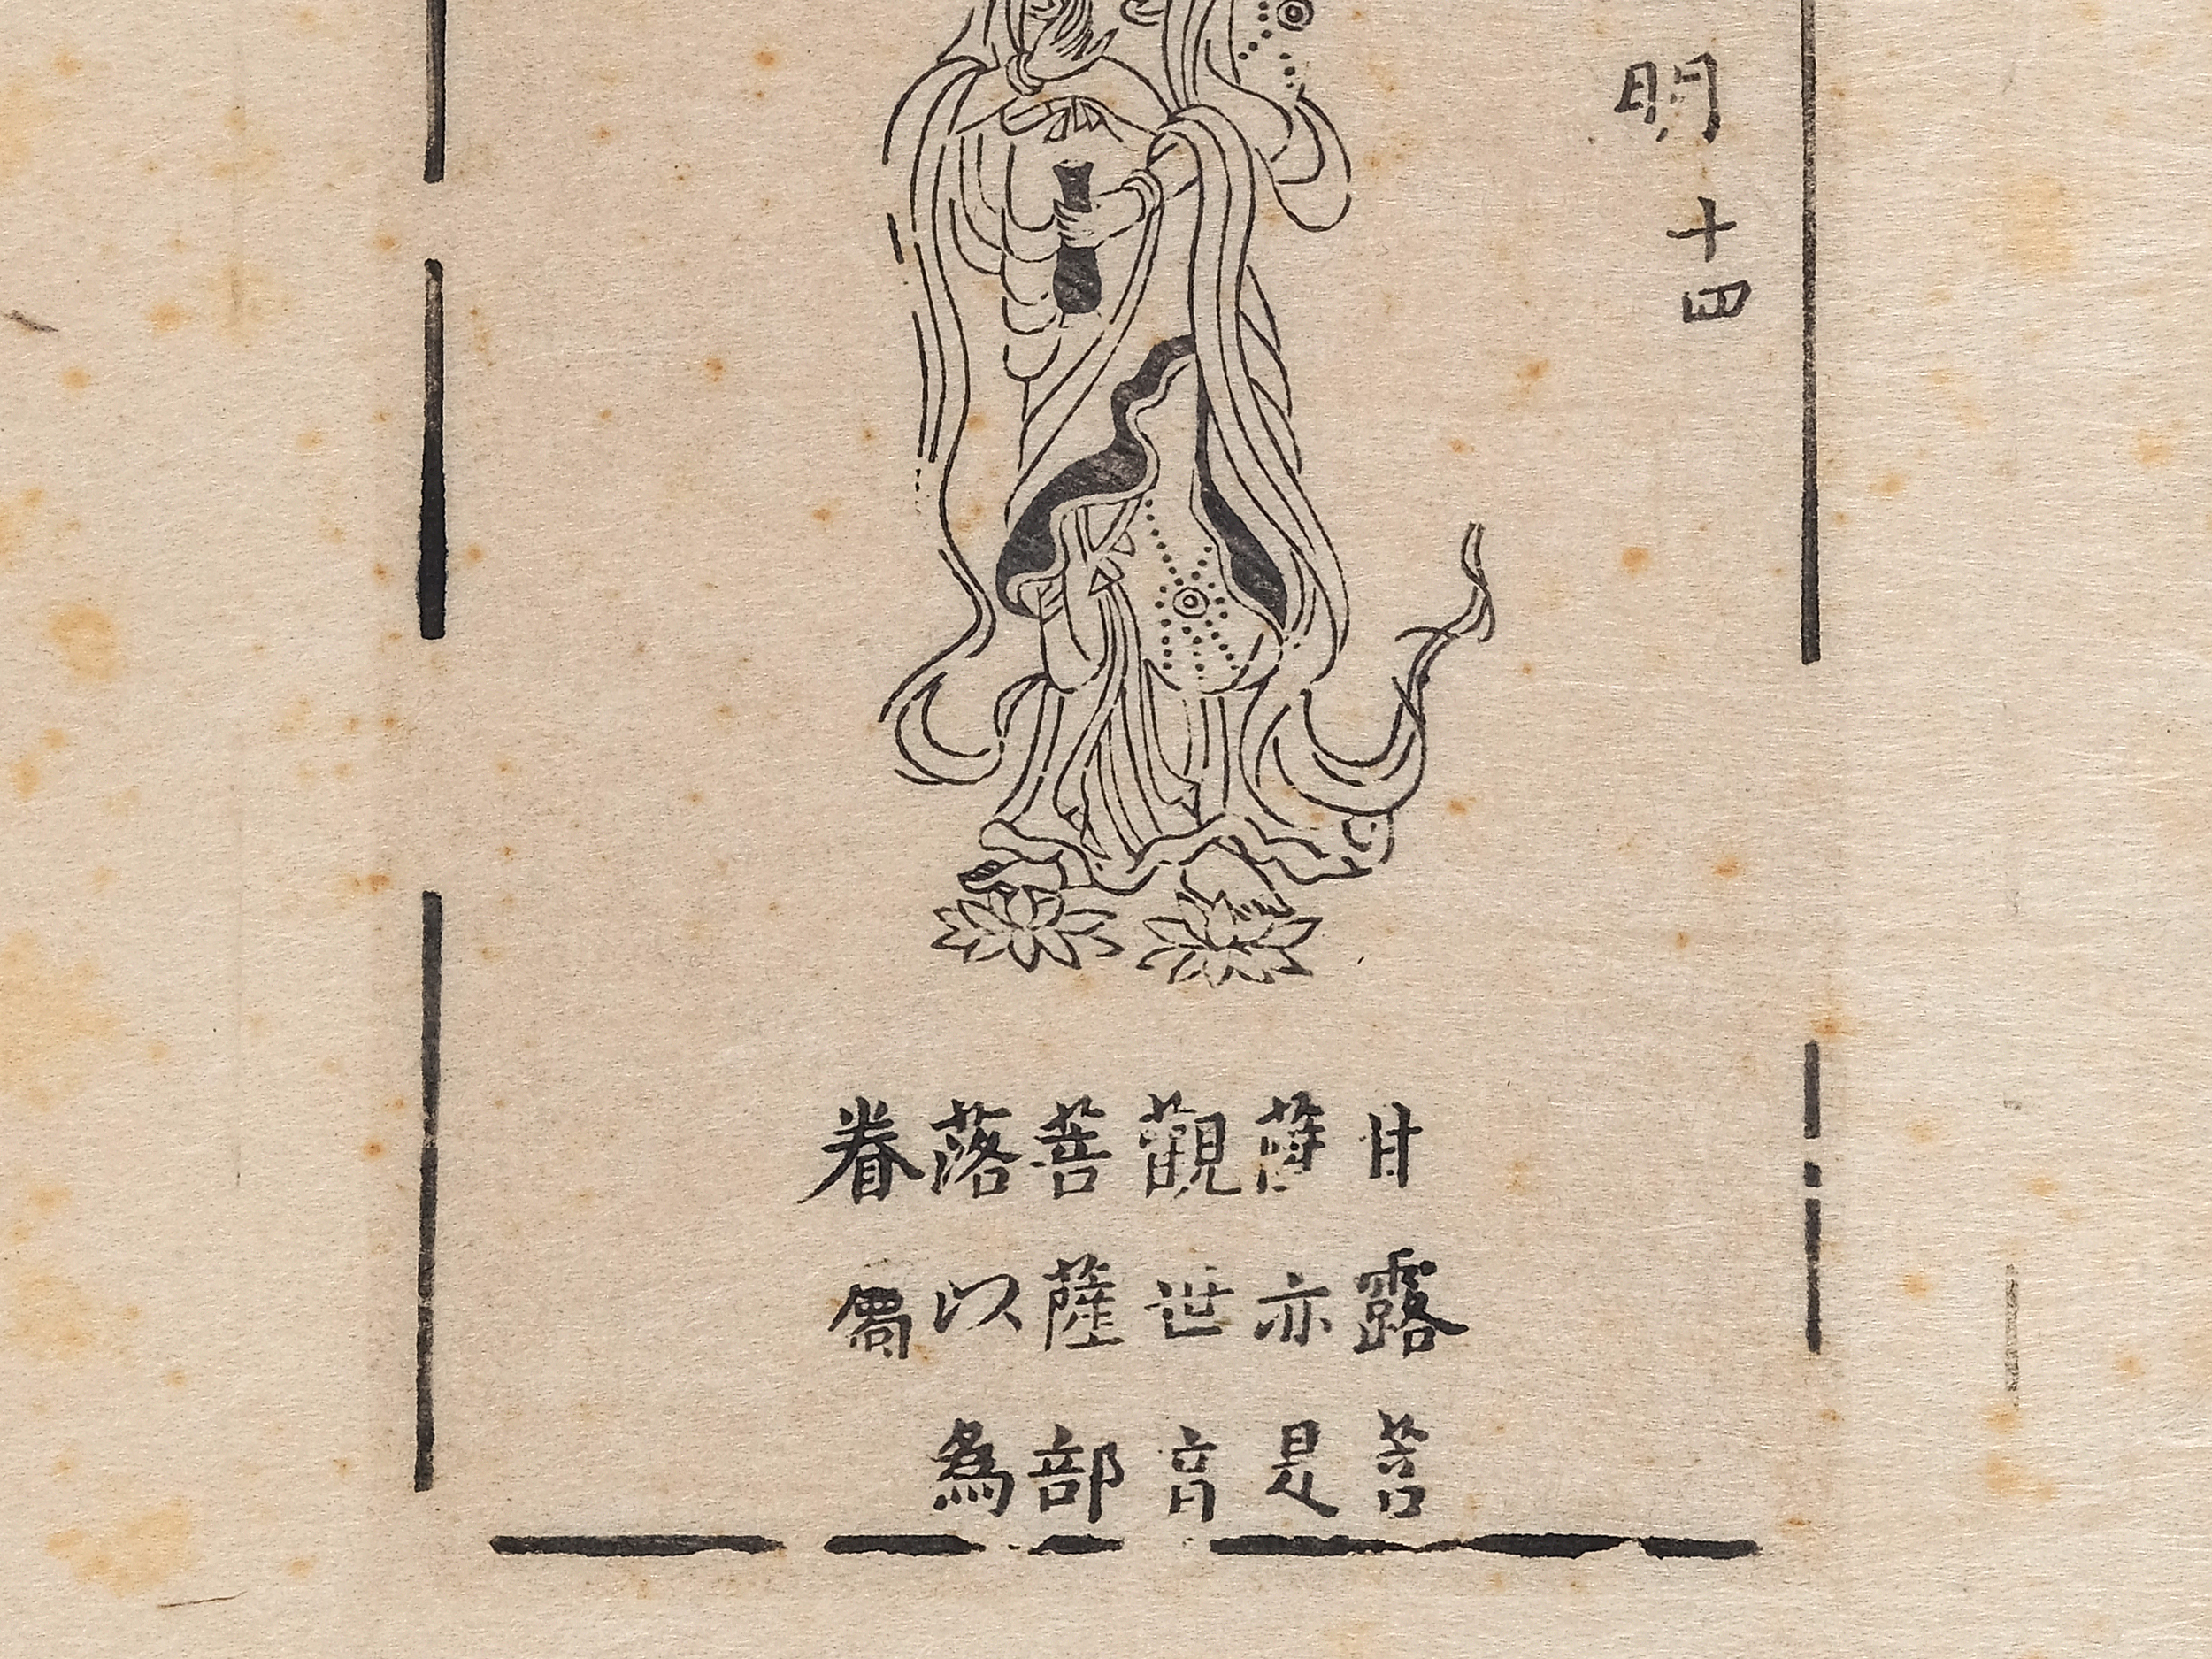 明十四
甘露菩
薩亦是
觀世音
菩薩部
落以爲
眷屬